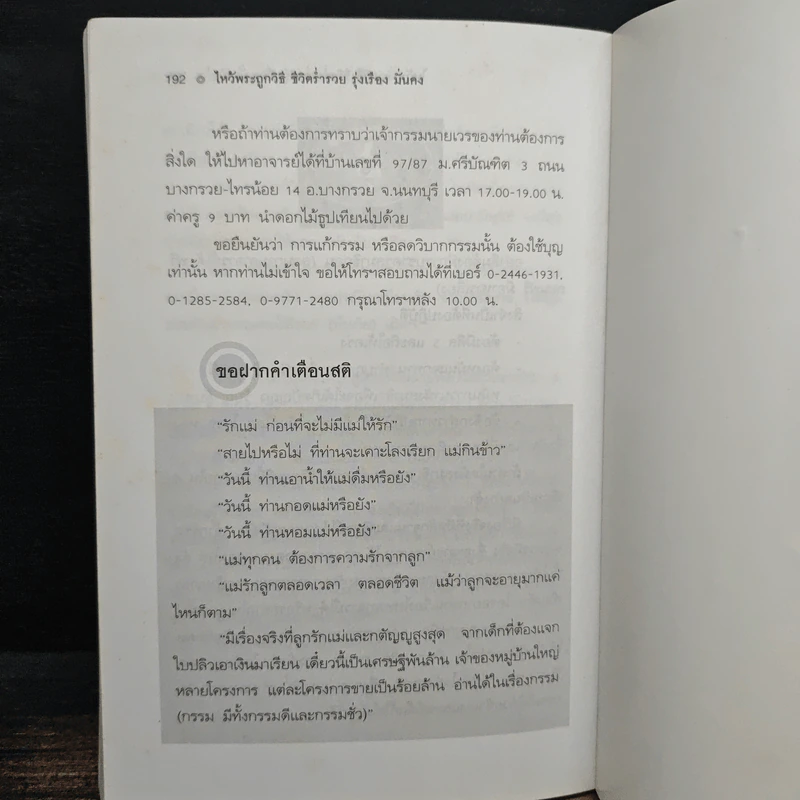 192 ไหว้พระถูกวิธี ชีวิตร่ำรวย รุ่งเรือง มั่นคง
หรือถ้าท่านต้องการทราบว่าเจ้ากรรมนายเวรของท่านต้องการ
สิ่งใด ให้ไปหาอาจารย์ได้ที่บ้านเลขที่ 97/87 ม.ศรีบัณฑิต 3 ถนน
บางกรวย-ไทรน้อย 14 อ.บางกรวย จ.นนทบุรี เวลา 17.00-19.00 น.
ค่าครู 9 บาท นำดอกไม้ธูปเทียนไปด้วย
ขอยืนยันว่า การแก้กรรม หรือลดวิบากกรรมนั้น ต้องใช้บุญ
เท่านั้น หากท่านไม่เข้าใจ ขอให้โทรฯสอบถามได้ที่เบอร์ 0-2446-1931,
0-1285-2584, 0-9771-2480 กรุณาโทรฯหลัง 10.00 น.
ขอฝากคำเตือนสติ
"รักแม่ ก่อนที่จะไม่มีแม่ให้รัก"
"สายไปหรือไม่ ที่ท่านจะเคาะโลงเรียก แม่กินข้าว"
"วันนี้ ท่านเอาน้ำให้แม่ดื่มหรือยัง"
"วันนี้ ท่านกอดแม่หรือยัง"
"วันนี้ ท่านหอมแม่หรือยัง"
"แม่ทุกคน ต้องการความรักจากลูก"
"แม่รักลูกตลอดเวลา ตลอดชีวิต แม้ว่าลูกจะอายุมากแค่
ไหนก็ตาม"
"มีเรื่องจริงที่ลูกรักแม่และกตัญญูสูงสุด จากเด็กที่ต้องแจก
ใบปลิวเอาเงินมาเรียน เดี๋ยวนี้เป็นเศรษฐีพันล้าน เจ้าของหมู่บ้านใหญ่
หลายโครงการ แต่ละโครงการขายเป็นร้อยล้าน อ่านได้ในเรื่องกรรม
(กรรม มีทั้งกรรมดีและกรรมชั่ว)"